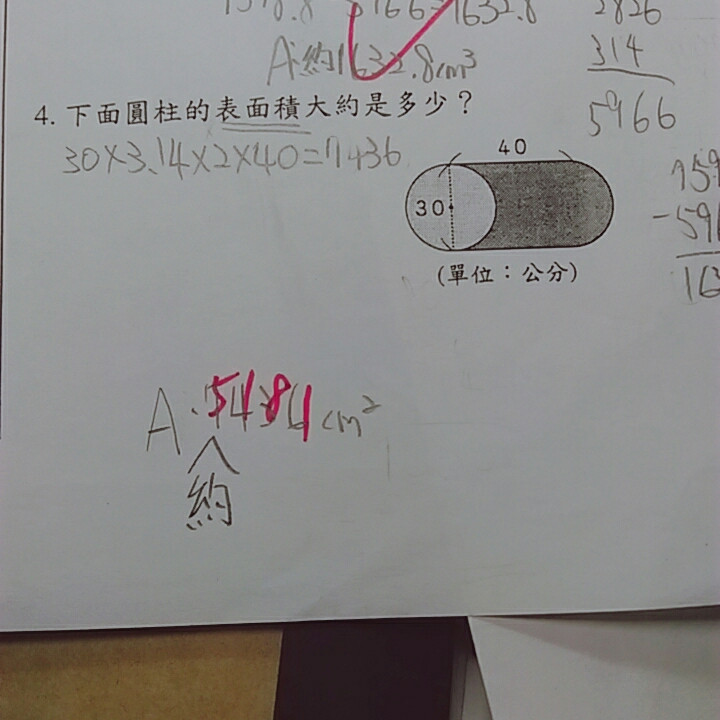 1632.8
A:約1632.8cm³
2826
314
5966
4. 下面圓柱的表面積大約是多少？
30×3.14×2×40=7436
40
30
(單位：公分)
A.5481cm²
約